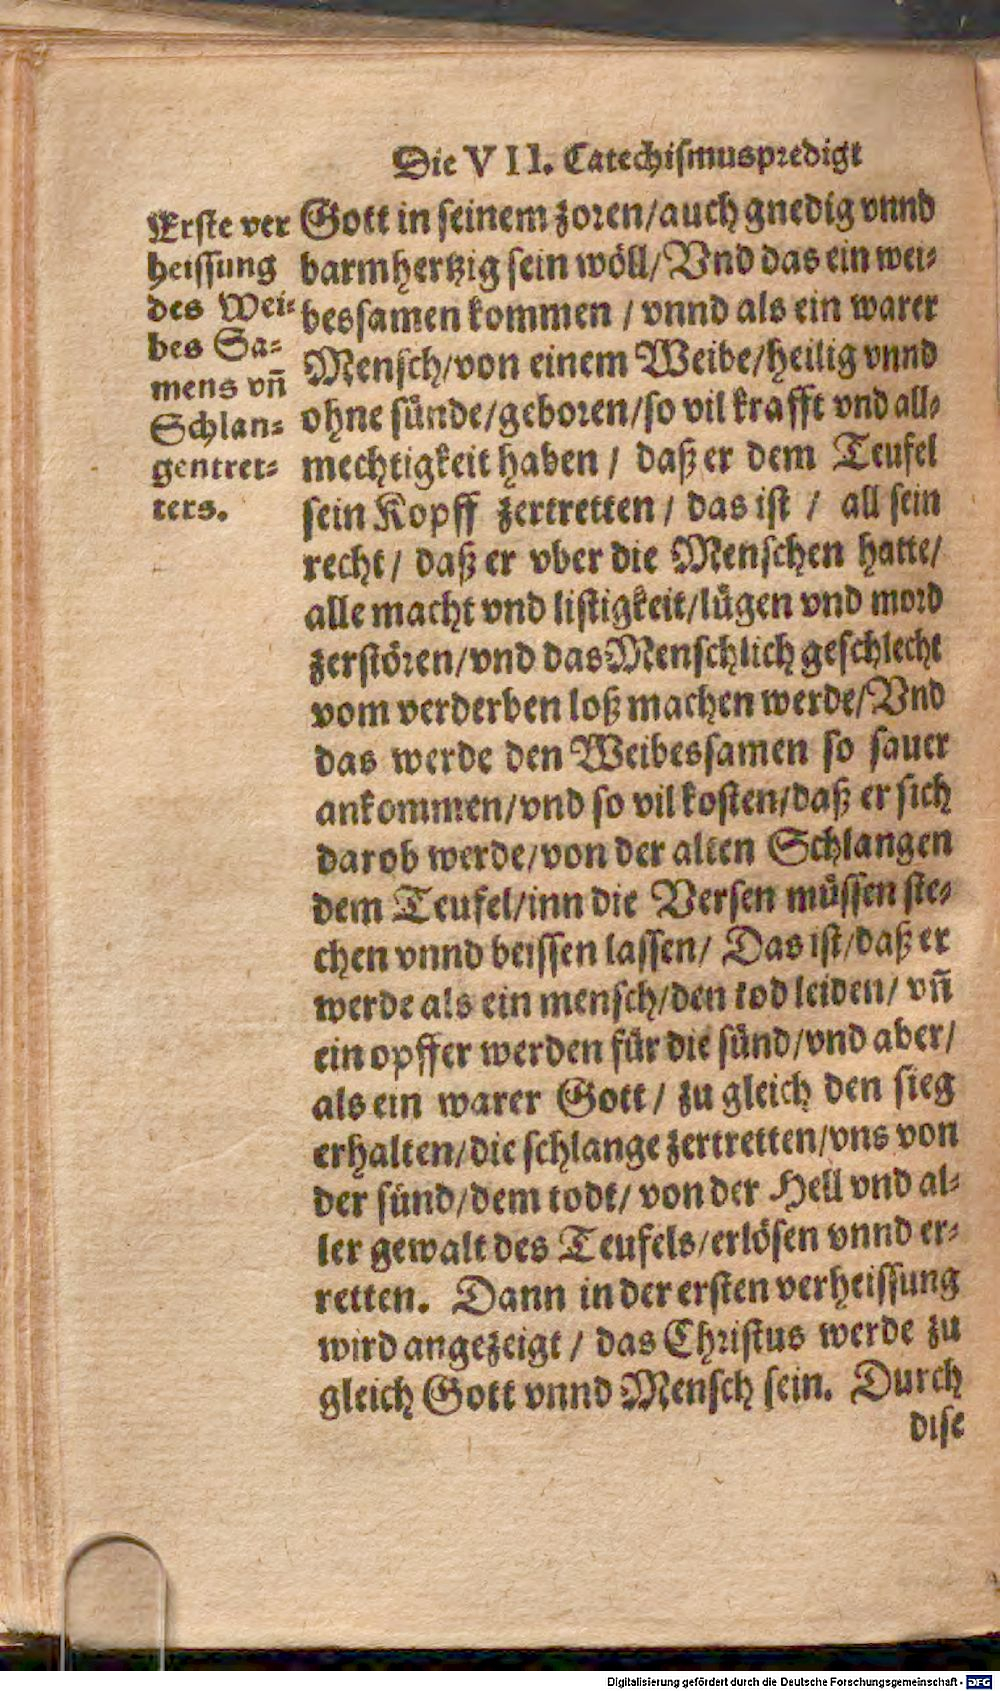 Die VII. Catechismuspredigt
Erste ver
heissung
des Wei-
bes Sa-
mens vñ
Schlan-
gentret-
ters.
Gott in seinem zoren/auch gnedig vnnd
barmhertzig sein wöll/Vnd das ein wei-
bessamen kommen / vnnd als ein warer
Mensch/von einem Weibe/heilig vnnd
ohne sünde/geboren/so vil krafft vnd all-
mechtigkeit haben / daß er dem Teufel
sein Kopff zertretten / das ist / all sein
recht / daß er vber die Menschen hatte/
alle macht vnd listigkeit/lügen vnd mord
zerstören/vnd das Menschlich geschlecht
vom verderben loß machen werde/Vnd
das werde den Weibessamen so sauer
ankommen/vnd so vil kosten/daß er sich
darob werde/von der alten Schlangen
dem Teufel/inn die Versen müssen ste-
chen vnnd beissen lassen/ Das ist/daß er
werde als ein mensch/den tod leiden/ vñ
ein opffer werden für die sünd/vnd aber/
als ein warer Gott / zu gleich den sieg
erhalten/die schlange zertretten/vns von
der sünd/dem todt/ von der Hell vnd al-
ler gewalt des Teufels/erlösen vnnd er-
retten. Dann in der ersten verheissung
wird angezeigt / das Christus werde zu
gleich Gott vnnd Mensch sein. Durch
dise
Digitalisierung gefördert durch die Deutsche Forschungsgemeinschaft - DFG